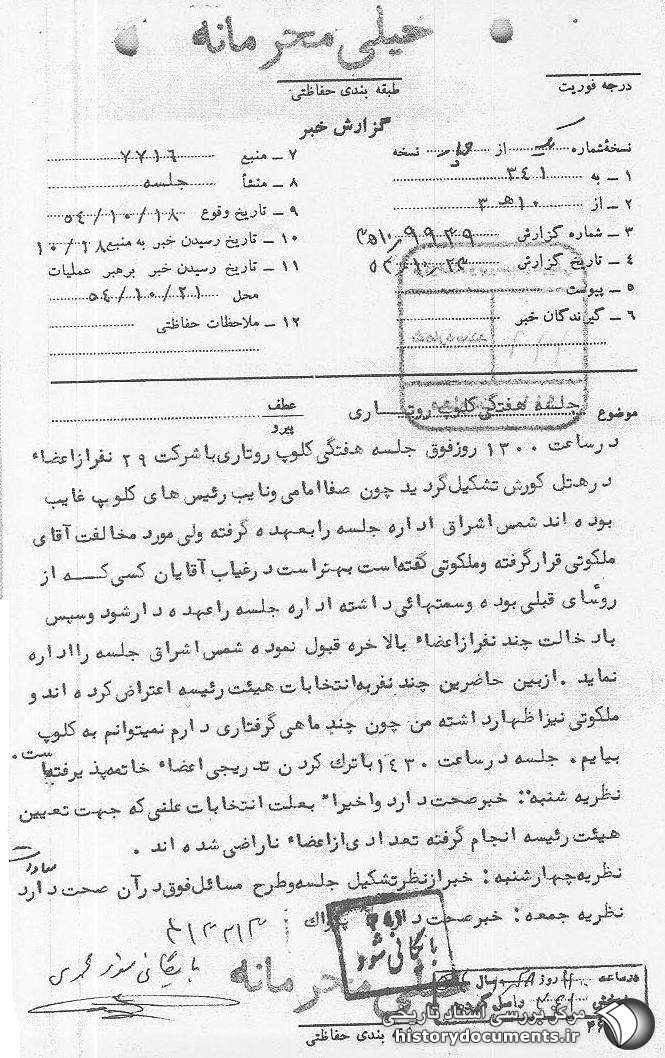 خیلی محرمانه
درجه فوریت
طبقه بندی حفاظتی
گزارش خبر
نسخه شماره یک از چهار نسخه
۱ ــ به ۳٤۱
۲ ــ از ۱۰ هـ ۳
۳ ــ شماره گزارش
٤ ــ تاریخ گزارش
۵ ــ پیوست
۶ ــ گیرندگان خبر
۷ ــ منبع ۷۷۱۶
۸ ــ منشأ جلسه
۹ ــ تاریخ وقوع ۵٤/۱۰/۱۸
۱۰ ــ تاریخ رسیدن خبر به منبع ۱۰/۱۸
۱۱ ــ تاریخ رسیدن خبر برهبر عملیات
محل ۵٤/۱۰/۲۱
۱۲ ــ ملاحظات حفاظتی
موضوع جلسه هفتگی کلوپ روتاری
عطف
پیرو
درساعت ۱۳۰۰ روزفوق جلسه هفتگی کلوپ روتاری با شرکت ۲۹ نفرازاعضاء
درهتل کورش تشکیل گردید چون صفا امامی ونایب رئیس های کلوپ غایب
بوده اند شمس اشراق اداره جلسه رابعهده گرفته ولی مورد مخالفت آقای
ملکوتی قرارگرفته وملکوتی گفته است بهتراست درغیاب آقایان کسی که از
روسای قبلی بوده وسمتهائی داشته اداره جلسه راعهده دارشود وسپس
بادخالت چند نفرازاعضاء بالاخره قبول نموده شمس اشراق جلسه رااداره
نماید . ازبین حاضرین چند نفربه انتخابات هیئت رئیسه اعتراض کرده اند و
ملکوتی نیزاظهارداشته من چون چند ماهی گرفتاری دارم نمیتوانم به کلوپ
بیایم . جلسه درساعت ۱٤۳۰ باترک کردن تدریجی اعضاء خاتمه پذیرفته است .
نظریه شنبه : خبرصحت دارد واخیرا" بعلت انتخابات علنی که جهت تعیین
هیئت رئیسه انجام گرفته تعدادی ازاعضاء ناراضی شده اند .
نظریه چهارشنبه : خبرازنظرتشکیل جلسه وطرح مسائل فوق درآن صحت دارد
نظریه جمعه : خبرصحت دارد
بایگانی شود
خیلی محرمانه
طبقه بندی حفاظتی
مرکز بررسی اسناد تاریخی
historydocuments.ir